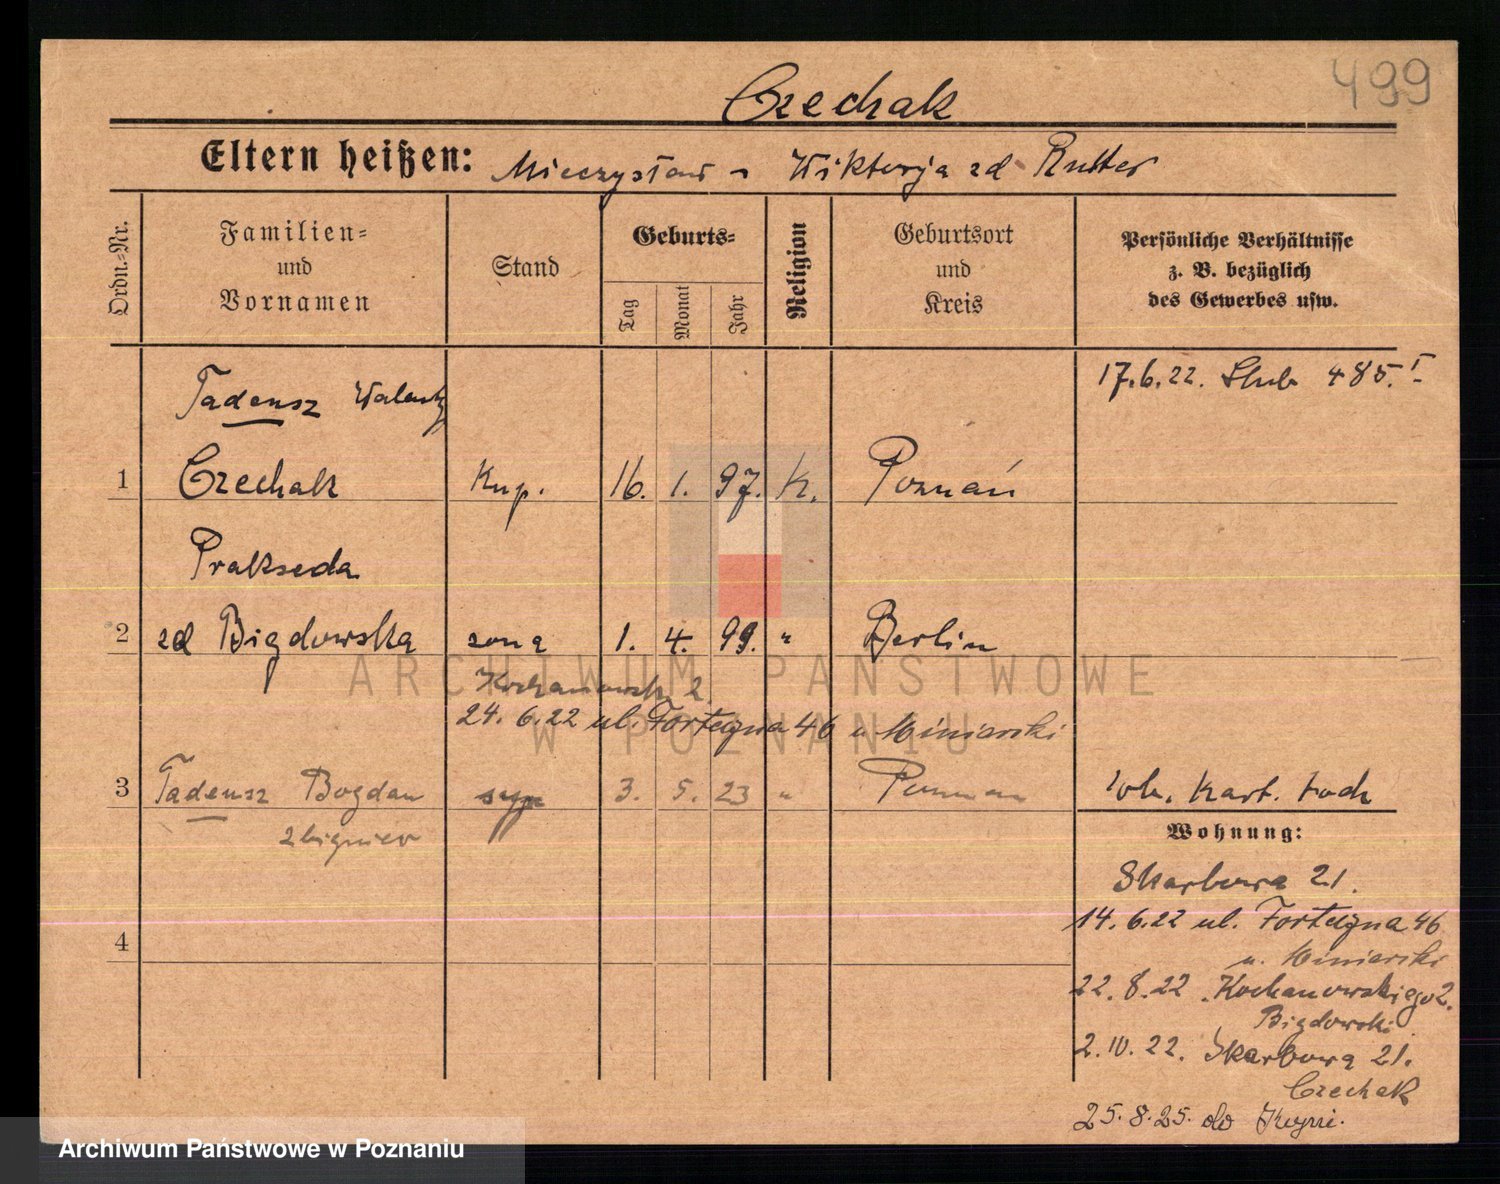 499
Czechak
Eltern heißen: Mieczysław - Wiktorja zd Rutter
Ordn.-Nr.
Familien-
und
Vornamen
Stand
Geburts-
Tag
Monat
Jahr
Religion
Geburtsort
und
Kreis
Persönliche Verhältnisse
z. B. bezüglich
des Gewerbes usw.
17.6.22. Ślub 485.I
Tadeusz Walenty
1 Czechak Kup. 16. 1. 97. K. Poznań
Prakseda
2 zd Bigdowska żona 1. 4. 99. " Berlin
Kochanowsk 2
24. 6.22 ul. Forteczna 46 u Miniarski
3 Tadeusz Bogdan syn 3. 5. 23 " Poznan
Zbigniew
zob. Kart. Koch
Wohnung:
Skarbowa 21.
14. 6.22 ul. Forteczna 46
u. Miniarski
22. 8. 22 Kochanowskiego 2.
Bigdowski
2. 10. 22. Skarbowa 21.
Czechak
25. 8. 25. do Kcyni.
4
ARCHIWUM PAŃSTWOWE
W POZNANIU
Archiwum Państwowe w Poznaniu